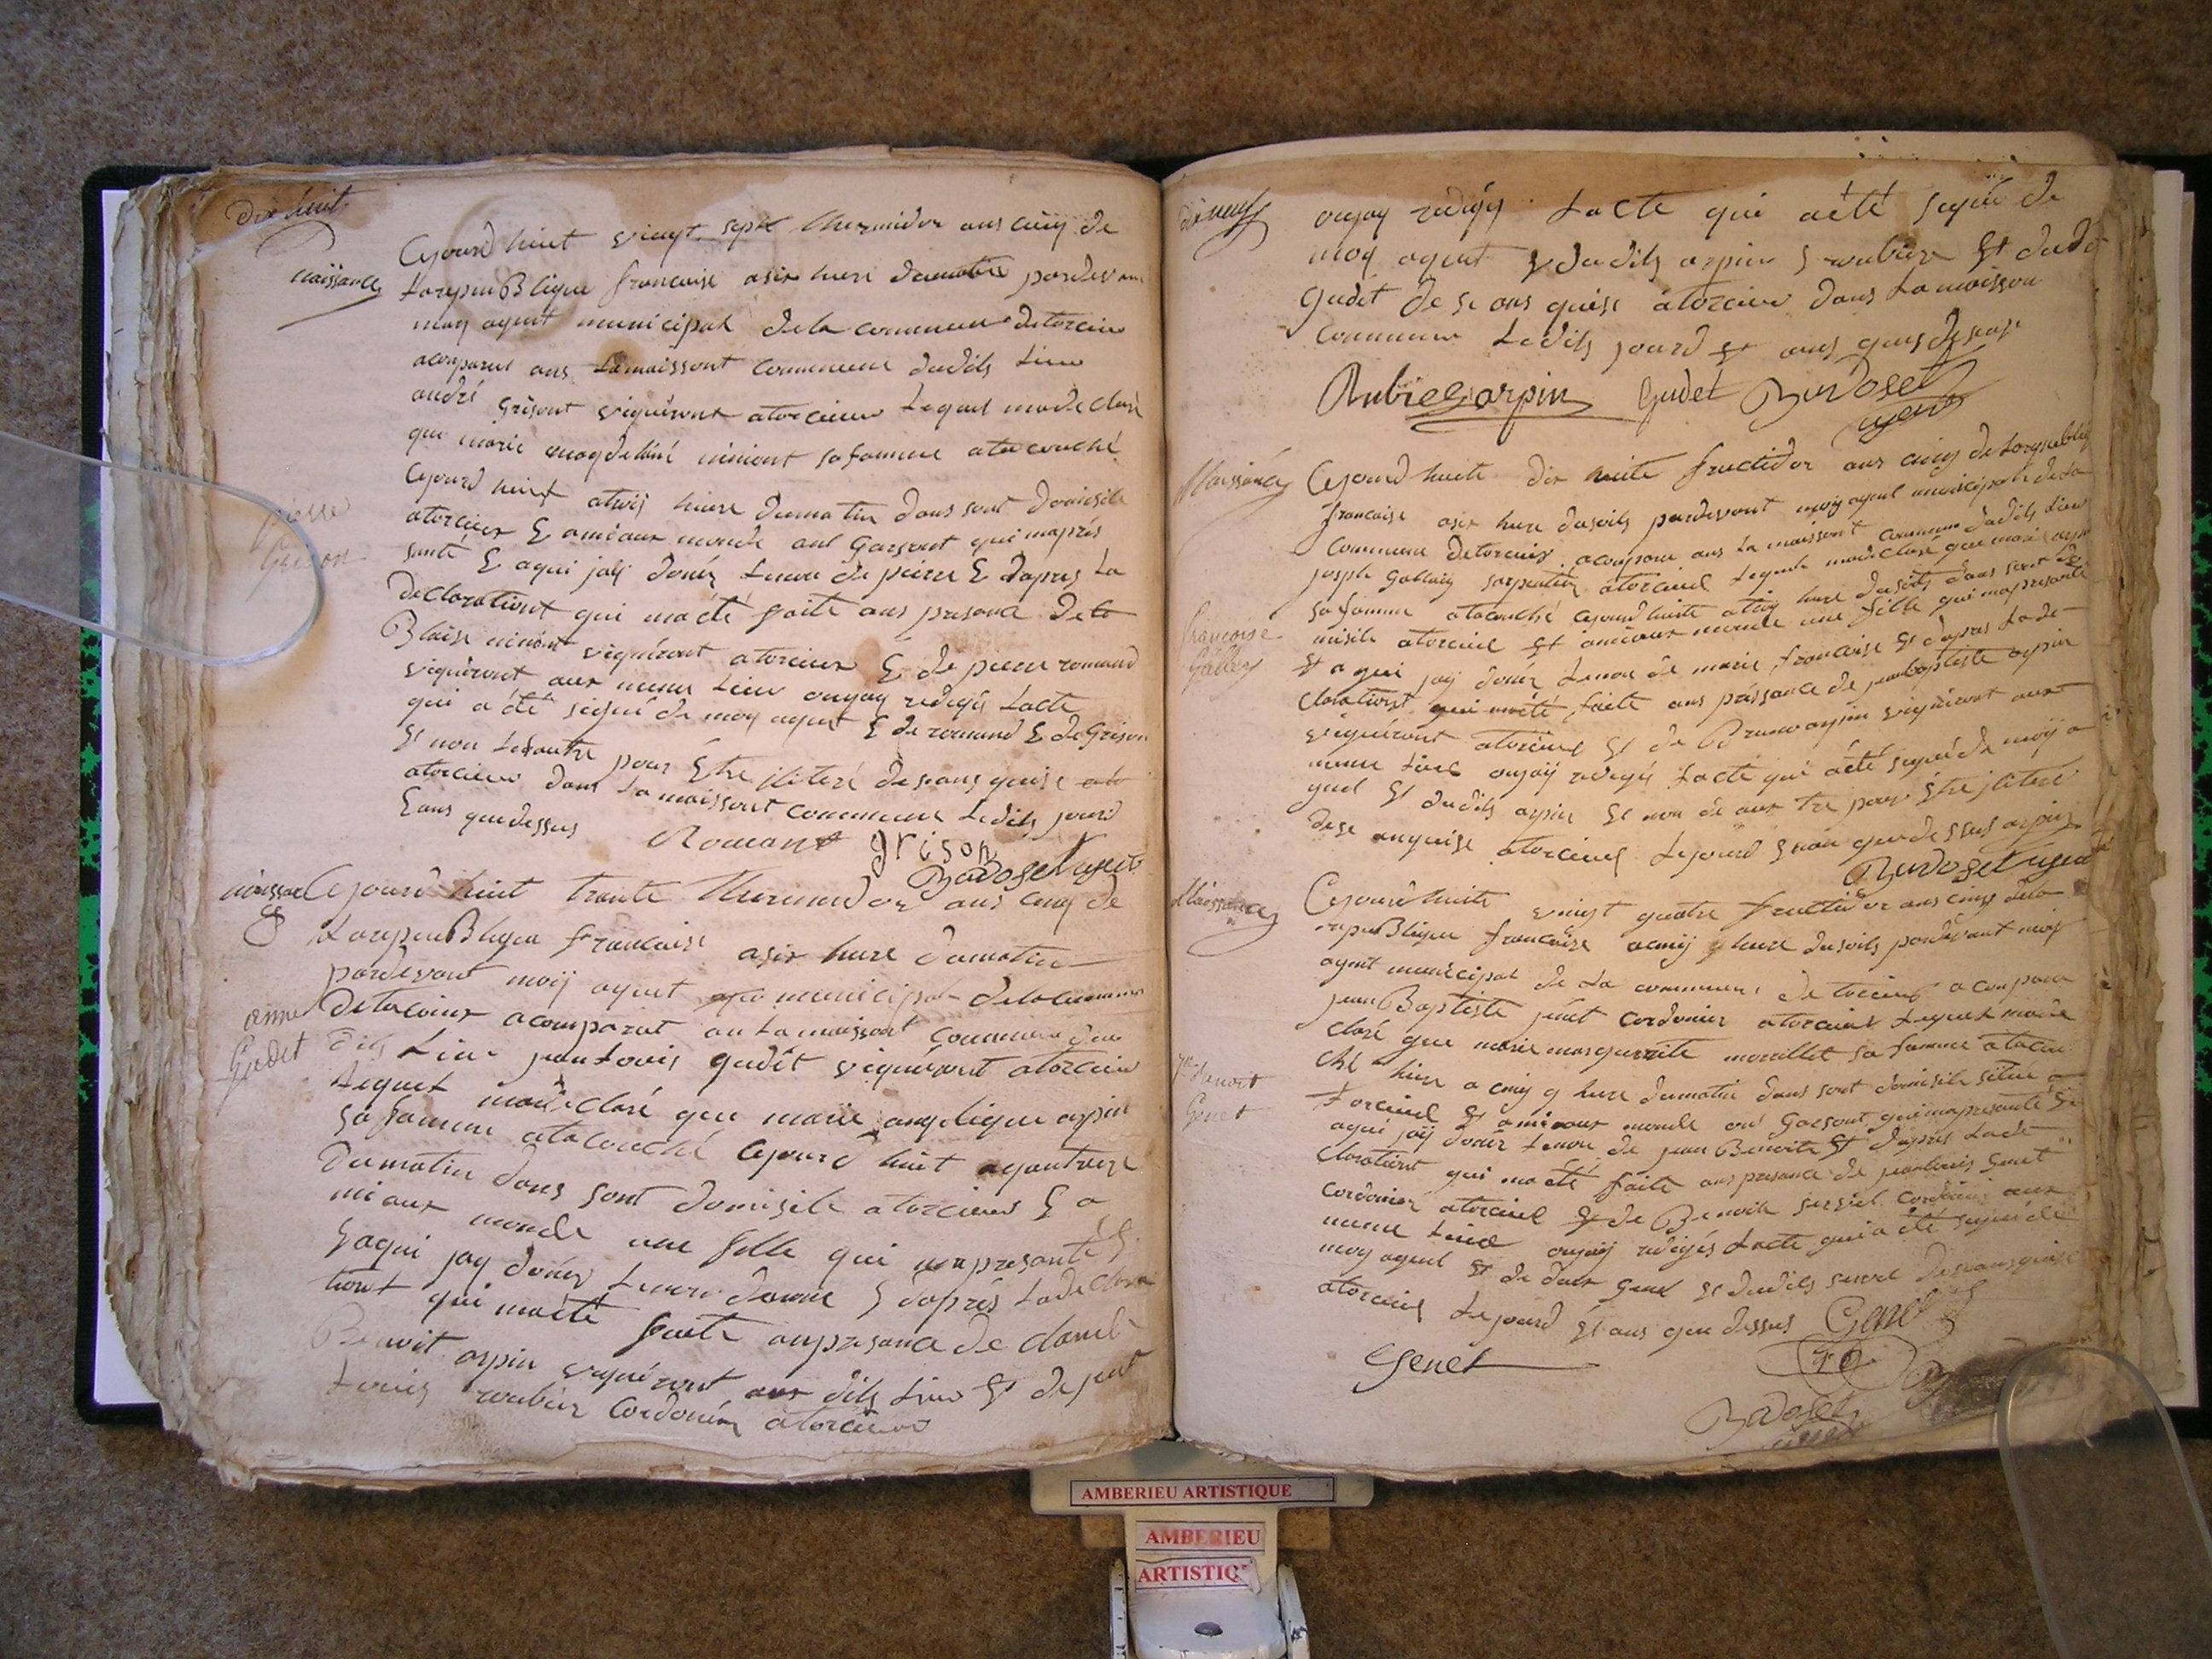 dix huit
naissance
Cejourd huit vingt sept thermidor ans cinq de
larepeuBlique francaise asix heure dumatin pardevans
moy agent municipal dela commune detorcieu
acomparus ans lamaissont commune dudits lieu
andré grisont vigniéront atorcieu lequel madeclaré
que marie magdelainé niniont safamme atacouché
Cejourd huit atrois heure dumatin dans sont domicile
atorcieux & amis aux monde ent Garsont qui mapres
santé & aqui jaÿ donéz lenom de pierre & dapres la
declarationt qui maété faite ans presance de
Blaise niniont vigniéront atorcieux & de pierre romand
vigniéront aux meme lieu enjaÿ redigés lacte
qui a été signé de moy agent & de romand & deGrison
et non lodautre pour Être iliteré desans quise
atorcieu dans la maissont commune ledits jourd
& ans que dessus
pierre
Grison
Romant grison
Burdoset agent
naissance
Cejourd huit trante thermidor ans cinq de
LarepeuBlique francaise asix hure dumatin
pardevant moÿ agent municipal delacommune
detorcieux acomparut ans la maissont commune du
dits lieu jeanlouis gudét vigniéront atorcieu
lequel madeclaré que marie angelique arpin
sa famme atacouché Cejourd huit
dumatin dans sont domisile atorcieu & a
mi aux monde une fille qui mapresanté
& aqui jay donéz lenom danne & daprés ladeclara
tiont qui maété faite anpresance de claude
Benoit arpin vigniéront aux dits lieu et de jean
louis roubier cordoniér atorcieu
anne
Gudet
dixneuf
enjay redigés lacte qui aété signé de
moy agent & dudits arpin & roubier et dudit
Gudét de se ans quise atorcieu dans lamaisson
commune ledits jourd et ans que dessus
Rubier arpin Gudet Burdoset
agent
Naissance
Cejourd huite dix huite fructidor ans cinq delarepublique
francaise asix hure dusoits pardevant moy agent municipale dela
commune detorcieux acompare ans la maissont commune dudits lieu
joseph Gallaiy sarpentiér atorcieul lequele madeclaré que marie arpin
sa famme atacouché cejourd huite atrois hure dusoits dans sont do
misile atorcieul et amis aux monde une fille qui mapresanté
et a qui jay donéz lenom de marie francoise et dapres lade
clarationt qui maété faite ans préssance de jeanbaptiste arpin
vigniéront atorcieul et de Bruno arpin vigniéront aux
meme lieu enjaÿ redigés lacte qui aété signé de moÿ a
gent et dudits arpin et non de autre pour Être iliteré
dese anquise atorcieul lejourd & ans que dessus arpin
Burdoset agent
francoise
Gallay
Naissance
Cejourd huite vingt quatre fructidor ans cinq dela
repuBlique francaise acinq hure dusoits pardevant moÿ
agent municipal de la commune de torcieu acompara
jeanBaptiste jenét cordonier atorcieux lequel made
claré que marie marguerite morellet sa famme atacou
ché hier a cinq hure dumatin dans sont domisile situe a
torcieul et amis aux monde ent Garsont qui mapresanté et
aqui jaÿ donéz lenom de jean Benoite et dapres lade
clarationt qui maété faite ans presance de jeanlouis Genet
cordoniér atorcieul et de Benoite cordonier aux
meme lieu enjaÿ redigés lacte qui a été signé de
moy agent et de deux Genet et dudits desans quise
atorcieul lejourd et ans que dessus Genet
jn Benoit
Genet
Genet
Burdoset
AMBERIEU ARTISTIQUE
AMBERIEU
ARTISTIQ